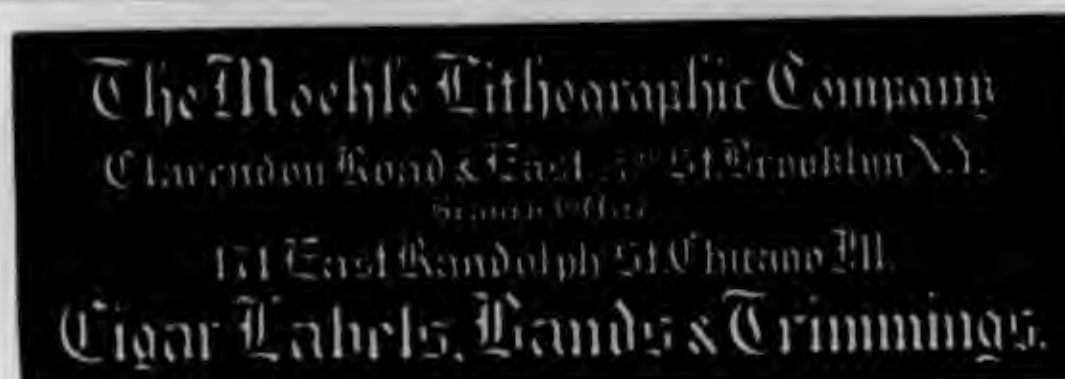 The Moehle Lithographic Company
Clarendon Road & East St. Brooklyn N.Y.
Branch Office
171 East Randolph St. Chicago Ill.
Cigar Labels, Bands & Trimmings.